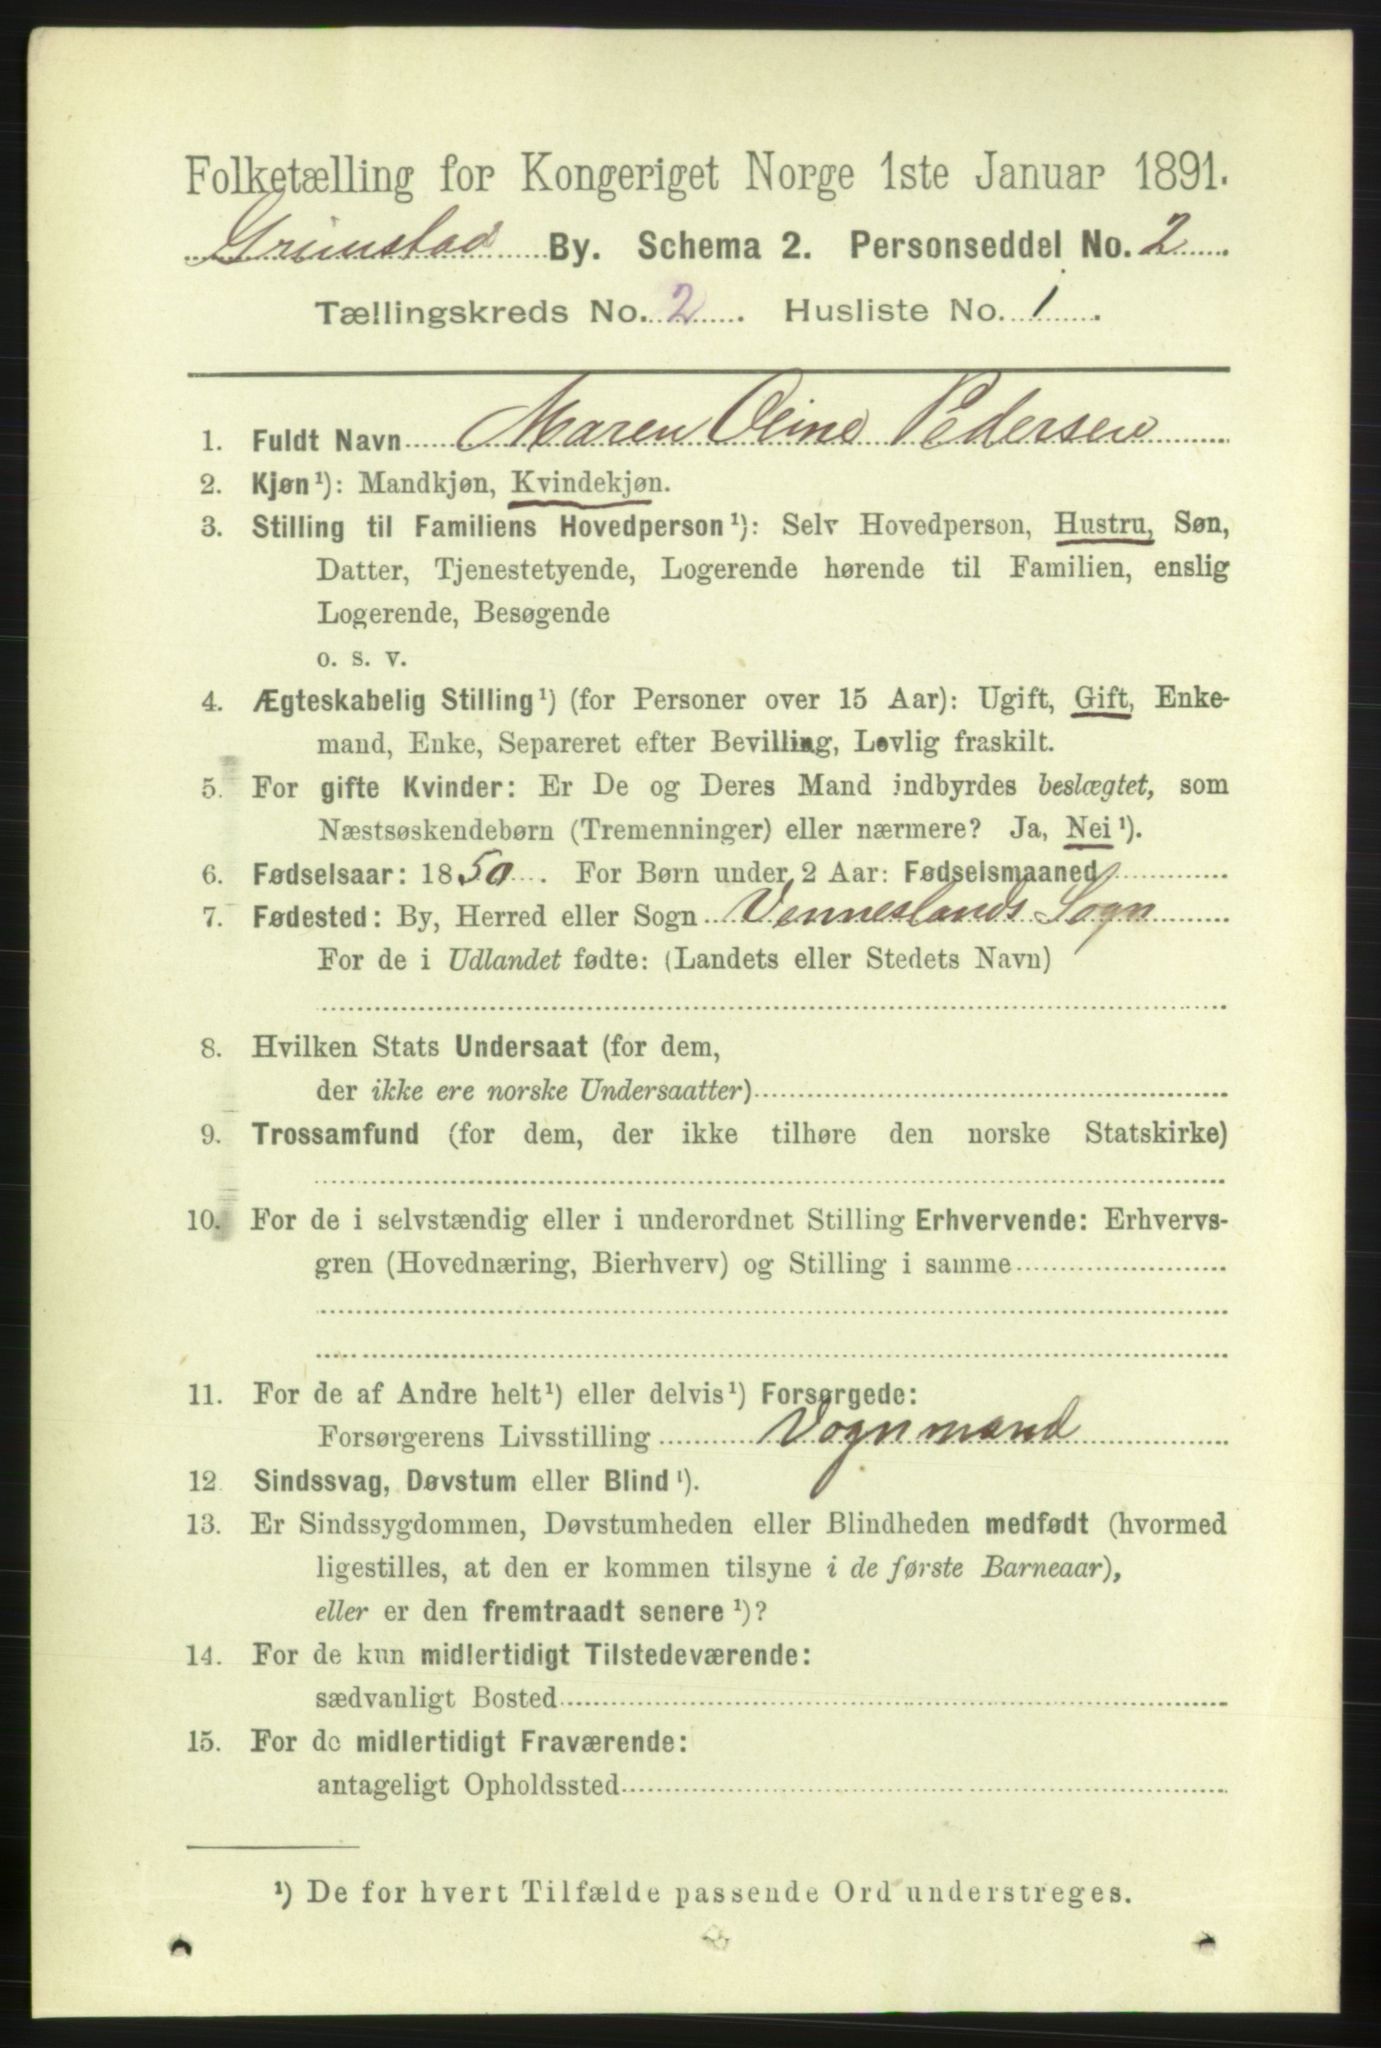 Folketælling for Kongeriget Norge 1ste Januar 1891.
Grimstad By. Schema 2. Personseddel No. 2
Tællingskreds No. 2. Husliste No. 1.
1. Fuldt Navn Maren Oline Pedersen
2. Kjøn¹): Mandkjøn, Kvindekjøn.
3. Stilling til Familiens Hovedperson¹): Selv Hovedperson, Hustru, Søn,
Datter, Tjenestetyende, Logerende hørende til Familien, enslig
Logerende, Besøgende
o. s. v.
4. Ægteskabelig Stilling¹) (for Personer over 15 Aar): Ugift, Gift, Enke-
mand, Enke, Separeret efter Bevilling, Lovlig fraskilt.
5. For gifte Kvinder: Er De og Deres Mand indbyrdes beslægtet, som
Næstsøskendebørn (Tremenninger) eller nærmere? Ja, Nei¹).
6. Fødselsaar: 1850. For Børn under 2 Aar: Fødselsmaaned
7. Fødested: By, Herred eller Sogn Venneslands Sogn
For de i Udlandet fødte: (Landets eller Stedets Navn)
8. Hvilken Stats Undersaat (for dem,
der ikke ere norske Undersaatter)
9. Trossamfund (for dem, der ikke tilhøre den norske Statskirke)
10. For de i selvstændig eller i underordnet Stilling Erhvervende: Erhvervs-
gren (Hovednæring, Bierhverv) og Stilling i samme
11. For de af Andre helt¹) eller delvis¹) Forsørgede:
Forsørgerens Livsstilling Vognmand
12. Sindssvag, Døvstum eller Blind¹).
13. Er Sindssygdommen, Døvstumheden eller Blindheden medfødt (hvormed
ligestilles, at den er kommen tilsyne i de første Barneaar),
eller er den fremtraadt senere¹)?
14. For de kun midlertidigt Tilstedeværende:
sædvanligt Bosted
15. For de midlertidigt Fraværende:
antageligt Opholdssted
¹) De for hvert Tilfælde passende Ord understreges.